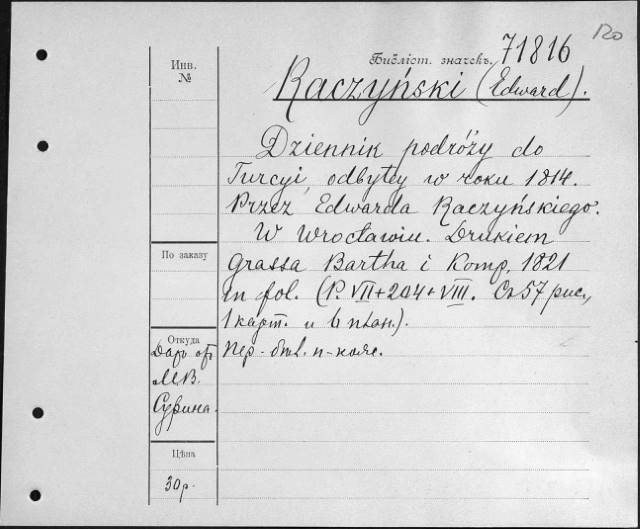 120
Библіот. значекъ. 71816
Инв.
№
Raczyński (Edward).
Dziennik podróży do
Turcyi, odbytey w roku 1814.
Przez Edwarda Raczyńskiego.
W Wrocławiu. Drukiem
Grassa Bartha i Komp. 1821
in fol. (P. VII+204+VIII. Съ 57 рис.,
1 карт. и 6 план.).
По заказу
Откуда
Даръ отъ
М.В.
Сурина.
Пер.
Цѣна
30 р.